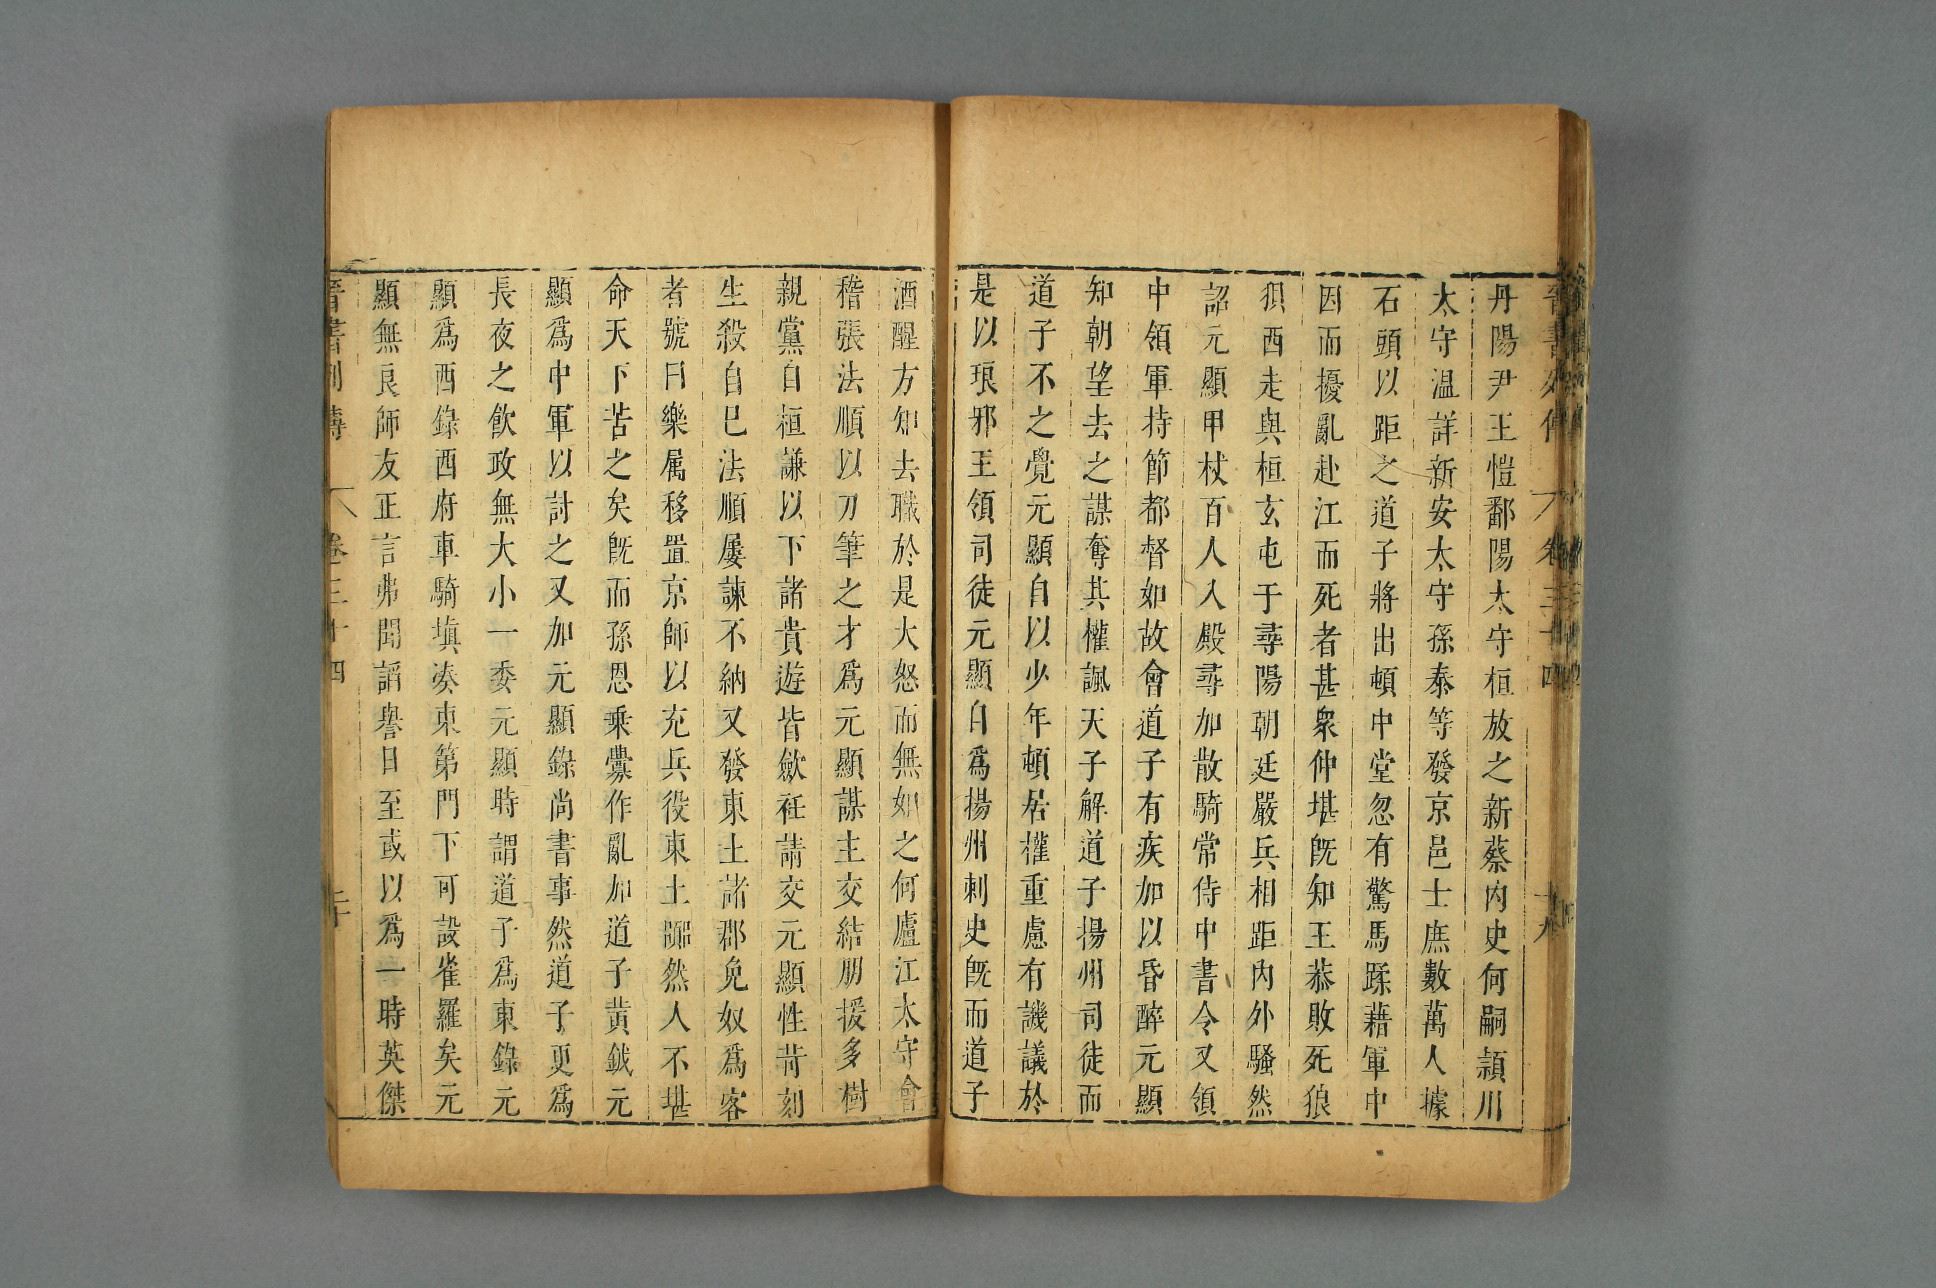 晉書列傳 卷三十四 十九
丹陽尹王愷鄱陽太守桓放之新蔡內史何嗣潁川
太守温詳新安太守孫泰等發京邑士庶數萬人據
石頭以距之道子將出頓中堂忽有驚馬蹂藉軍中
因而擾亂赴江而死者甚衆仲堪旣知王恭敗死狼
狽西走與桓玄屯于尋陽朝廷嚴兵相距內外騷然
詔元顯甲杖百人入殿尋加散騎常侍中書令又領
中領軍持節都督如故會道子有疾加以昏醉元顯
知朝望去之謀奪其權諷天子解道子揚州司徒而
道子不之覺元顯自以少年頓居權重慮有譏議於
是以琅邪王領司徒元顯自爲揚州刺史旣而道子
酒醒方知去職於是大怒而無如之何廬江太守會
稽張法順以刀筆之才爲元顯謀主交結朋援多樹
親黨自桓謙以下諸貴遊皆斂衽請交元顯性苛刻
生殺自己法順屢諫不納又發東土諸郡免奴爲客
者號曰樂属移置京師以充兵役東土囂然人不堪
命天下苦之矣旣而孫恩乗釁作亂加道子黄鉞元
顯爲中軍以討之又加元顯錄尚書事然道子更爲
長夜之飲政無大小一委元顯時謂道子爲東錄元
顯爲西錄西府車騎填湊東第門下可設雀羅矣元
顯無良師友正言弗聞諂譽日至或以爲一時英傑
晉書列傳 卷三十四 二十